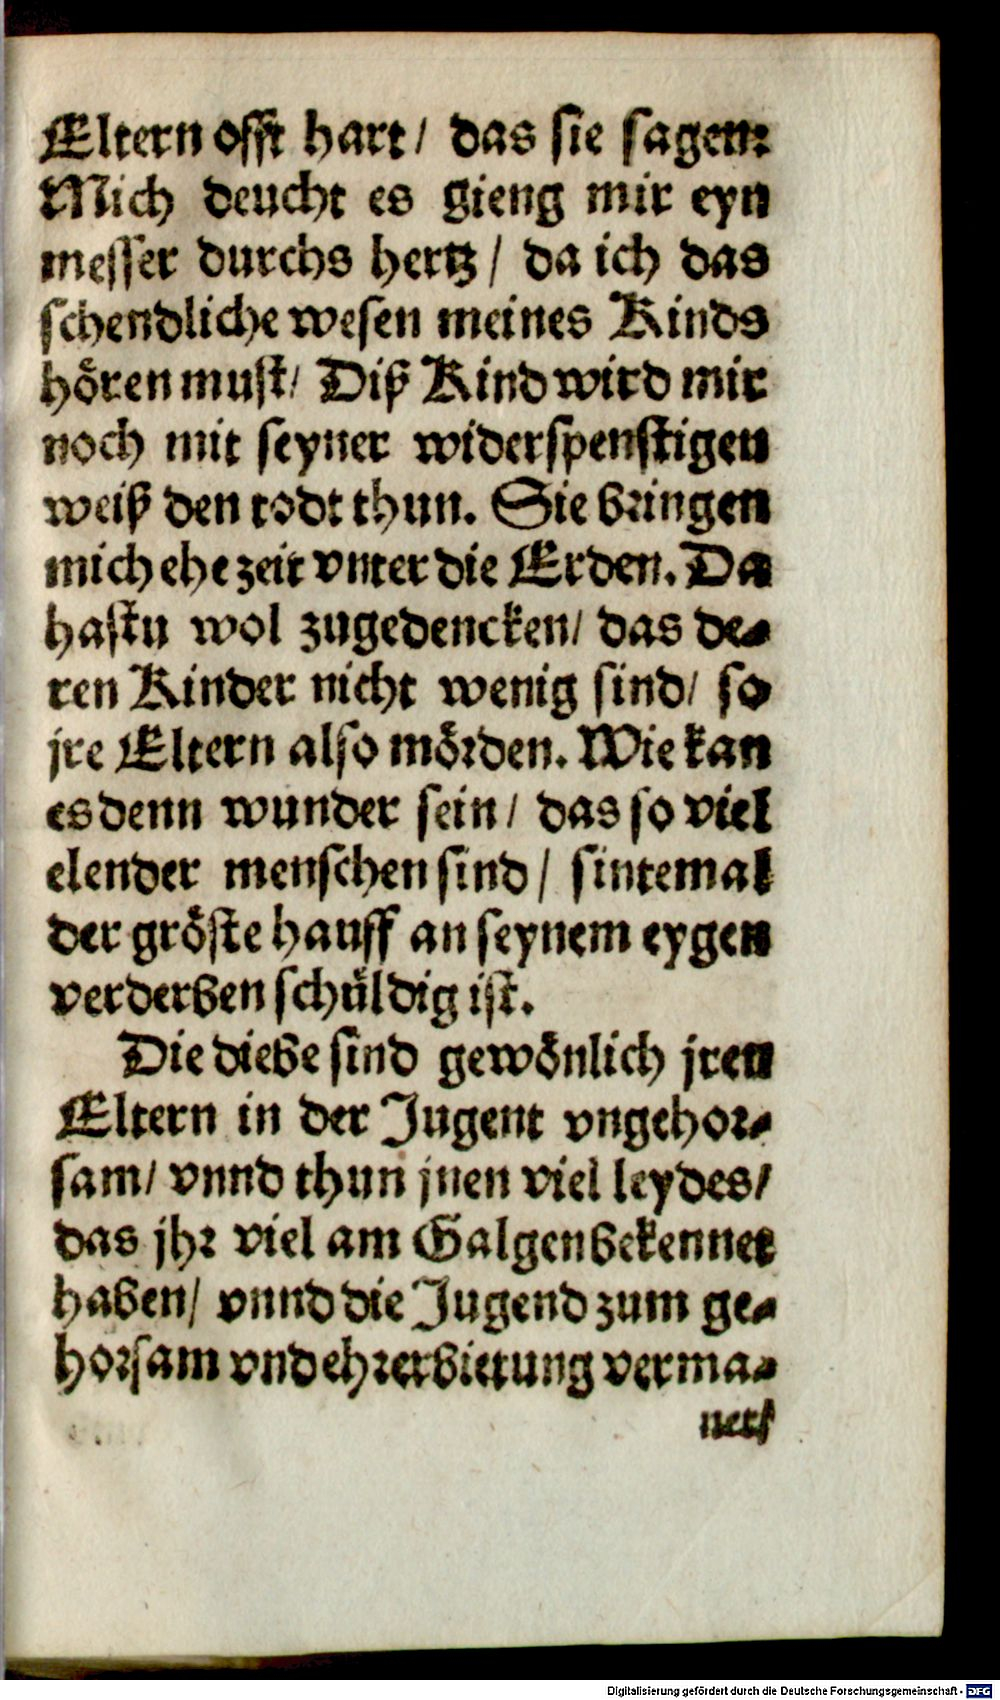 Eltern offt hart/ das sie sagen:
Mich deucht es gieng mir eyn
messer durchs hertz/ da ich das
schendliche wesen meines Kinds
hören must/ Diß Kind wird mir
noch mit seyner widerspenstigen
weiß den todt thun. Sie bringen
mich ehe zeit vnter die Erden. Da
hastu wol zugedencken/ das de-
ren Kinder nicht wenig sind/ so
jre Eltern also mörden. Wie kan
es denn wunder sein/ das so viel
elender menschen sind/ sintemal
der gröste hauff an seynem eygen
verderben schüldig ist.
Die diebe sind gewönlich jren
Eltern in der Jugent vngehor-
sam/ vnnd thun jnen viel leydes/
das jhr viel am Galgen bekennet
haben/ vnnd die Jugend zum ge-
horsam vnd ehrerbietung verma-
net/
Digitalisierung gefördert durch die Deutsche Forschungsgemeinschaft - DFG